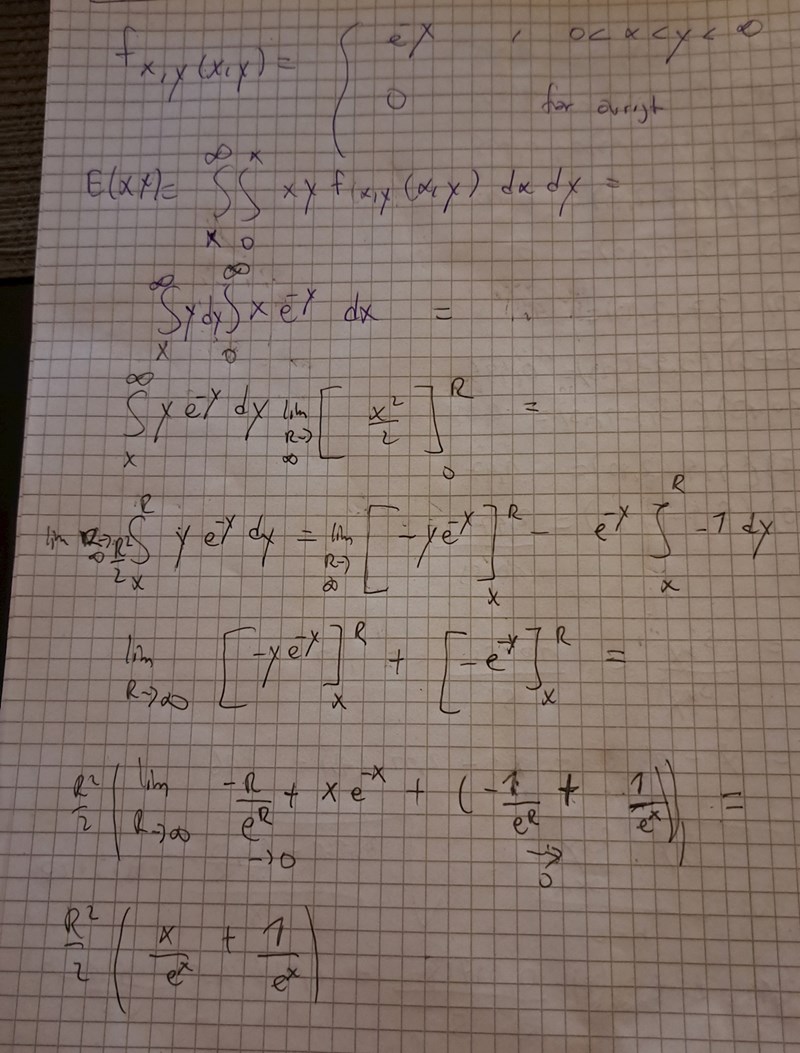 f_{x,y}(x,y) = { e^{-y} , 0 < x < y < ∞
0 for övrigt
E(XY) = ∫_x^∞ ∫_0^x xy f_{x,y}(x,y) dx dy =
∫_x^∞ y dy ∫_0^∞ x e^{-y} dx =
∫_x^∞ y e^{-y} dy lim_{R→∞} [ x²/2 ]_0^R =
lim_{R→∞} R²/2 ∫_x^R y e^{-y} dy = lim_{R→∞} [ -y e^{-y} ]_x^R - e^{-y} ∫_x^R -1 dy
lim_{R→∞} [ -y e^{-y} ]_x^R + [ -e^{-y} ]_x^R =
R²/2 ( lim_{R→∞} -R/e^R + x e^{-x} + ( -1/e^R + 1/e^x ) ) =
→0 →0
R²/2 ( x/e^x + 1/e^x )